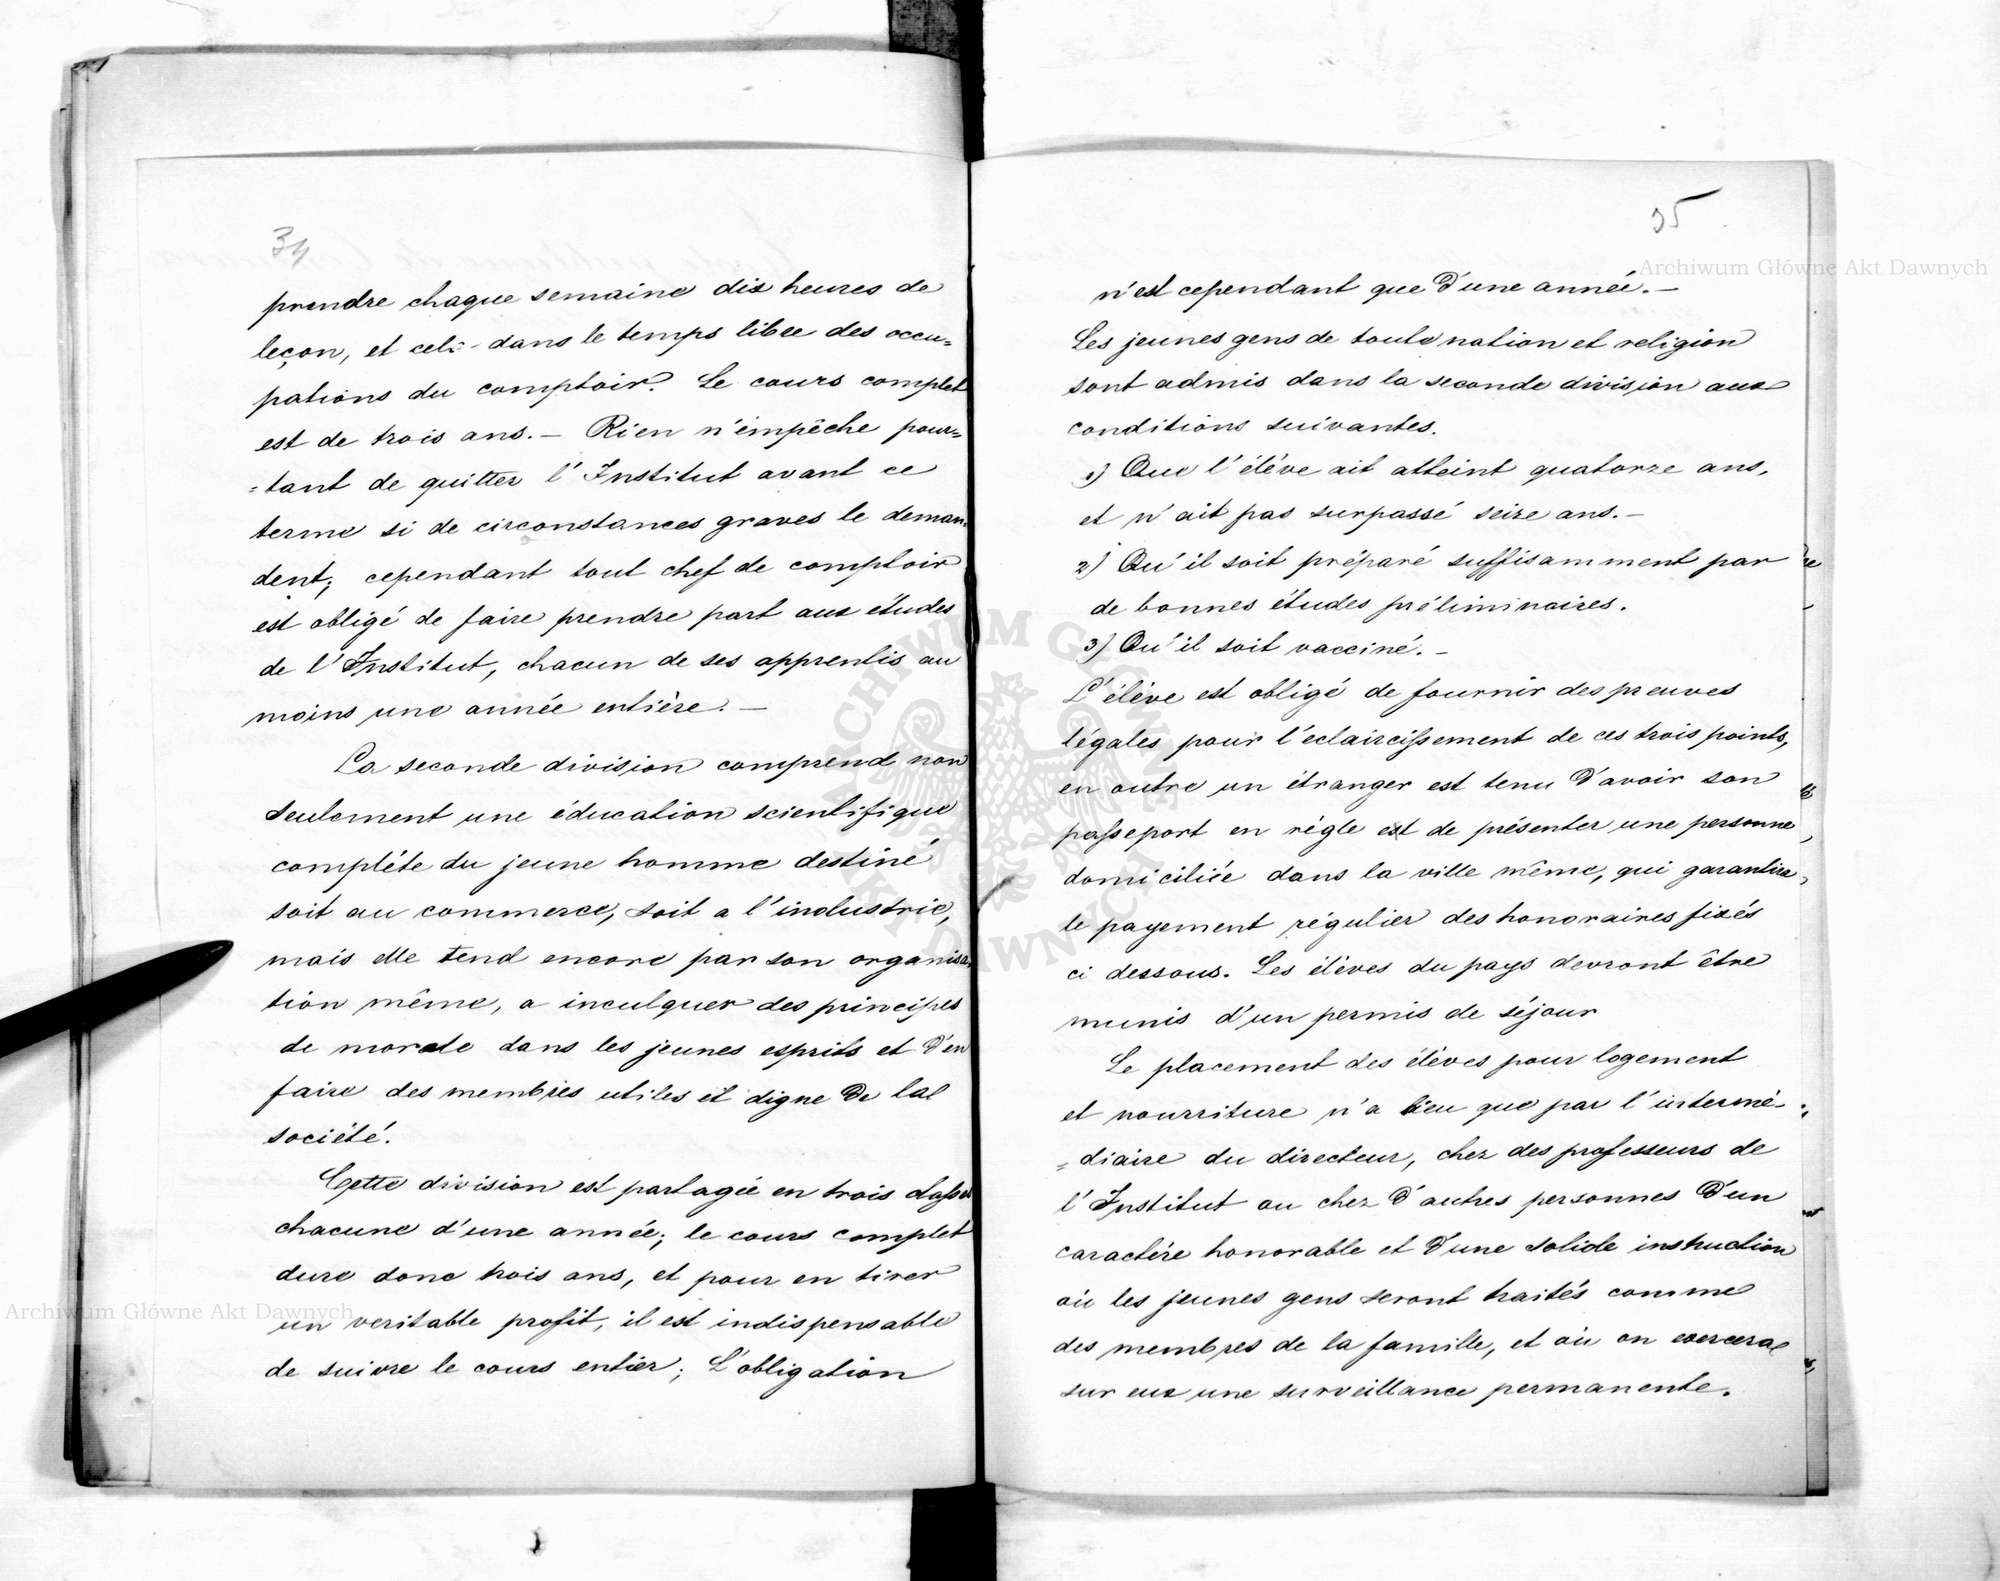 34
prendre chaque semaine dix heures de
leçon, et cela dans le temps libre des occu=
pations du comptoir. Le cours complet
est de trois ans. — Rien n'empêche pour=
=tant de quitter l'Institut avant ce
terme si de circonstances graves le deman=
dent; cependant tout chef de comptoir
est obligé de faire prendre part aux études
de l'Institut, chacun de ses apprentis au
moins une année entière. —
La seconde division comprend non
seulement une éducation scientifique
complète du jeune homme destiné
soit au commerce, soit a l'industrie,
mais elle tend encore par son organisa=
tion même, a inculquer des principes
de morale dans les jeunes esprits et d'en
faire des membres utiles et digne de la
société.
Cette division est partagée en trois classes
chacune d'une année; le cours complet
dure donc trois ans, et pour en tirer
un veritable profit, il est indispensable
de suivre le cours entier; L'obligation
35
n'est cependant que d'une année. —
Les jeunes gens de toute nation et religion
sont admis dans la seconde division aux
conditions suivantes.
1) Que l'élève ait atteint quatorze ans,
et n'ait pas surpassé seize ans. —
2) Qu'il soit préparé suffisamment par
de bonnes études préliminaires.
3) Qu'il soit vacciné. —
L'élève est obligé de fournir des preuves
légales pour l'eclaircissement de ces trois points,
en outre un étranger est tenu d'avoir son
passeport en règle et de présenter une personne
domiciliée dans la ville même, qui garantira
le payement régulier des honoraires fixés
ci dessous. Les élèves du pays devront être
munis d'un permis de séjour
Le placement des élèves pour logement
et nourriture n'a lieu que par l'intermé-
=diaire du directeur, chez des professeurs de
l'Institut ou chez d'autres personnes d'un
caractère honorable et d'une solide instruction
où les jeunes gens seront traités comme
des membres de la famille, et où on exercera
sur eux une surveillance permanente.
Archiwum Główne Akt Dawnych
Archiwum Główne Akt Dawnych
ARCHIWUM GŁÓWNE AKT DAWNYCH